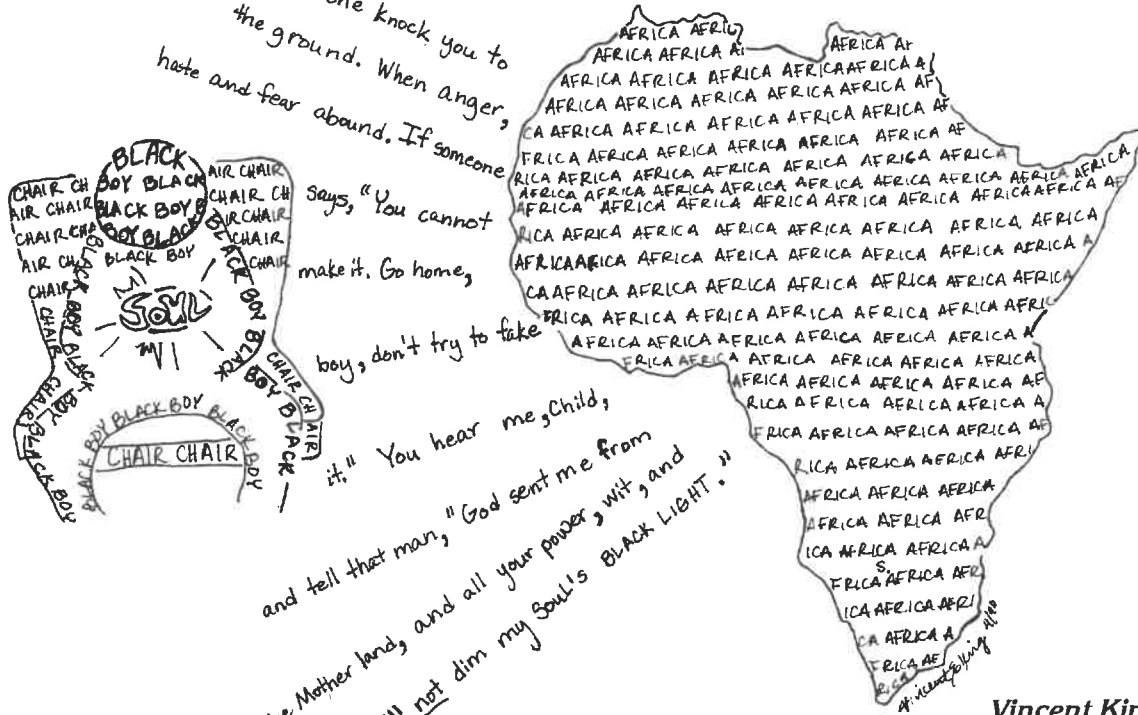 one knock you to
the ground. When anger,
hate and fear abound. If someone
says, "You cannot
make it. Go home,
boy, don't try to fake
it." You hear me, Child,
and tell that man, "God sent me from
Mother land, and all your power, wit, and
not dim my SOUL'S BLACK LIGHT."
BLACK
BOY BLACK
BLACK BOY B
BOY BLACK
BLACK BOY
CHAIR CH
AIR CHAIR
CHAIR CHA
AIR CH
CHAIR
CHAIR
CHAIR
AIR CHAIR
CHAIR CH
AIR CHAIR
CHAIR
CHAIR
CHAIR CH
AIR
BLACK BOY BLACK BOY
BLACK BOY BLACK
SOUL
BLACK BOY BLACK
BLACK BOY
BLACK BOY BLACK BOY BLACK BOY
CHAIR CHAIR
AFRICA AFRIC
AFRICA AFRICA A
AFRICA AF
AFRICA AFRICA AFRICA AFRICA AFRICA A
AFRICA AFRICA AFRICA AFRICA AFRICA AF
CA AFRICA AFRICA AFRICA AFRICA AFRICA AF
FRICA AFRICA AFRICA AFRICA AFRICA AFRICA AF
RICA AFRICA AFRICA AFRICA AFRICA AFRICA AFRICA
AFRICA AFRICA AFRICA AFRICA AFRICA AFRICA AFRICA AFRICA AFRICA
AFRICA AFRICA AFRICA AFRICA AFRICA AFRICA AFRICA AFRICA AF
RICA AFRICA AFRICA AFRICA AFRICA AFRICA AFRICA
AFRICA AFRICA AFRICA AFRICA AFRICA AFRICA AFRICA A
CA AFRICA AFRICA AFRICA AFRICA AFRICA AFRICA
FRICA AFRICA AFRICA AFRICA AFRICA AFRICA AFRIC
AFRICA AFRICA AFRICA AFRICA AFRICA A
FRICA AFRICA AFRICA AFRICA AFRICA AFRICA
AFRICA AFRICA AFRICA AFRICA AF
RICA AFRICA AFRICA AFRICA A
FRICA AFRICA AFRICA AFRICA AF
RICA AFRICA AFRICA AFRI
AFRICA AFRICA AFRICA
AFRICA AFRICA AFR
ICA AFRICA AFRICA A
S.
FRICA AFRICA AFR
ICA AFRICA AFRI
CA AFRICA A
FRICA AF
RICA
Vincent E King
Vincent Kin